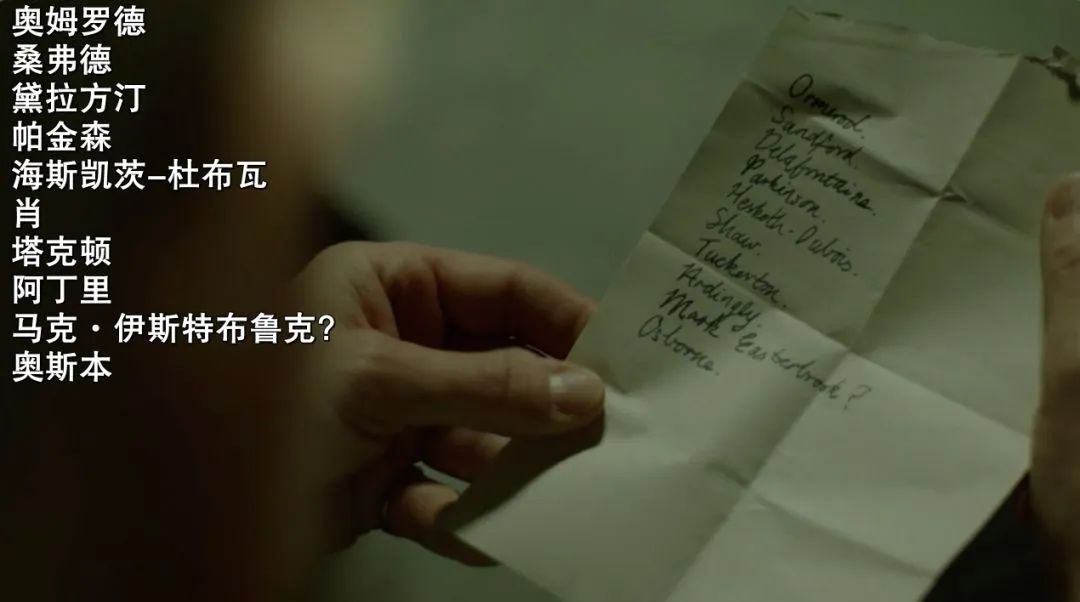 奥姆罗德
桑弗德
黛拉方汀
帕金森
海斯凯茨-杜布瓦
肖
塔克顿
阿丁里
马克·伊斯特布鲁克?
奥斯本
Ormerod.
Sandford.
Delafontaine.
Parkinson.
Hesketh-Dubois.
Shaw.
Tuckerton.
Ardingly.
Mark Easterbrook?
Osborne.